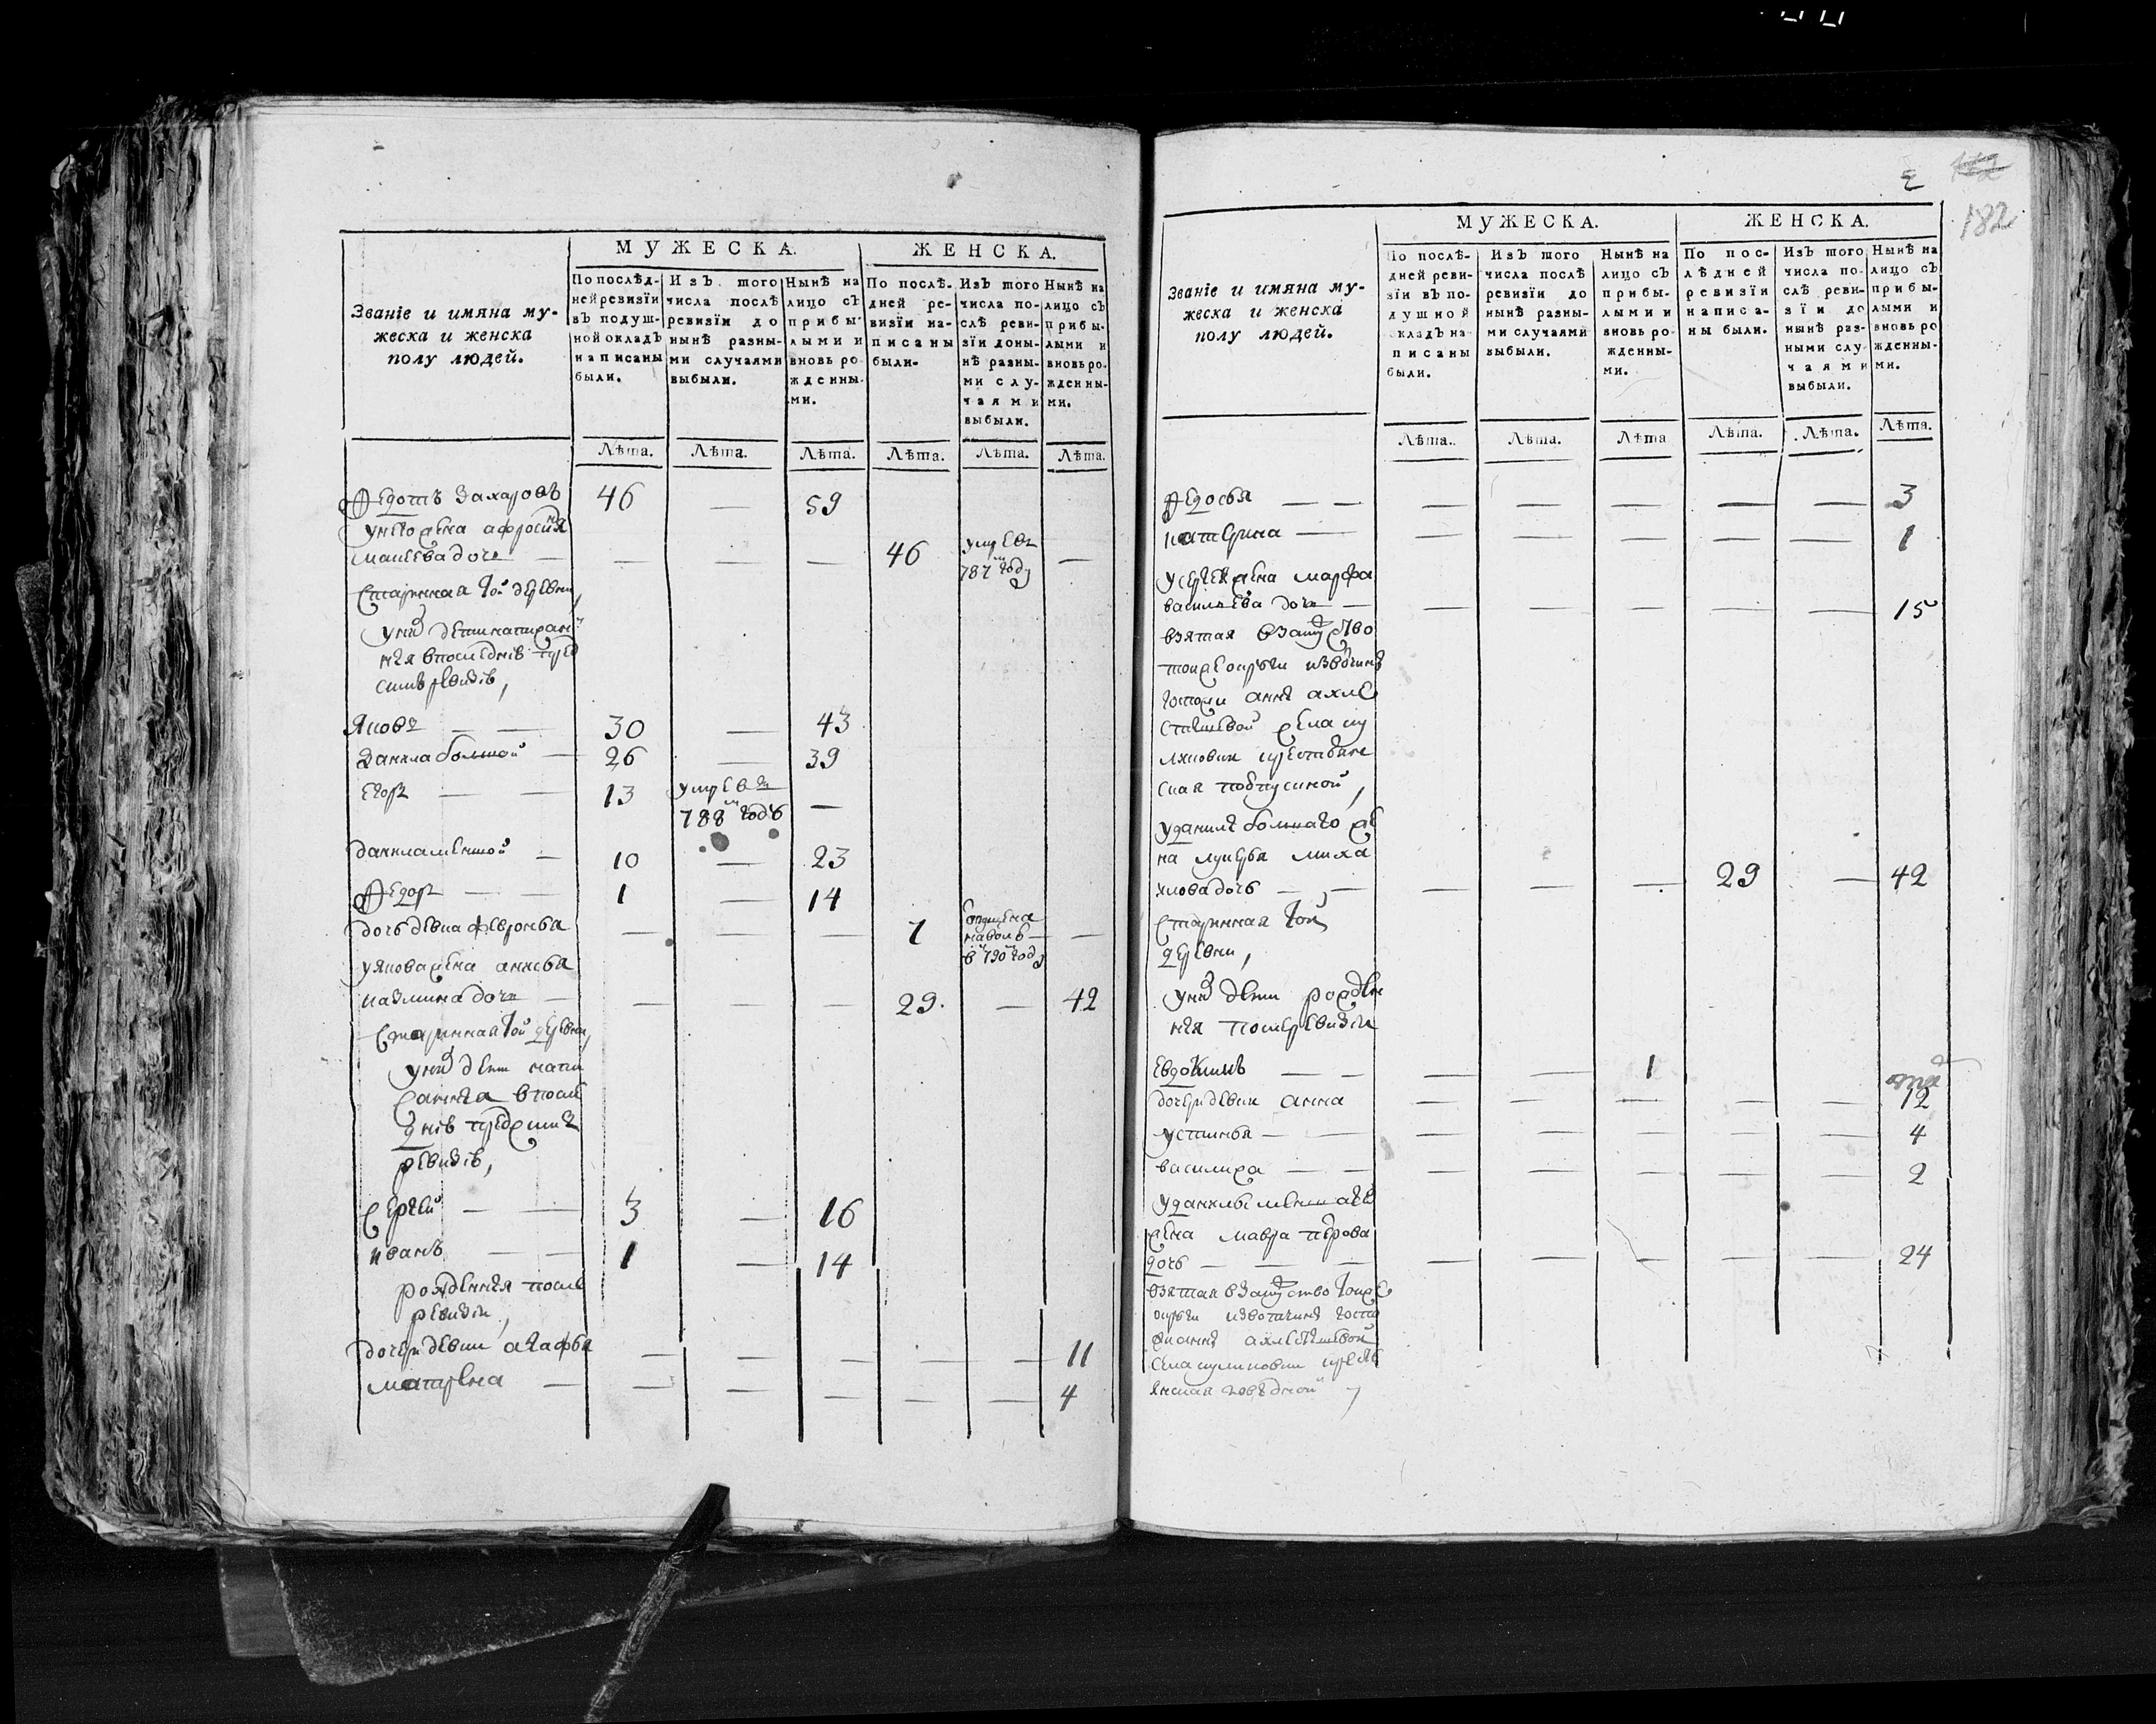 МУЖЕСКА.
ЖЕНСКА.
Званіе и имяна му-
жеска и женска
полу людей.
По послѣд-
ней ревизіи
въ подуш-
ной окладъ
написаны
были.
Изъ того
числа послѣ
ревизіи до
нынѣ разны-
ми случаями
выбыли.
Нынѣ на
лицо съ
прибы-
лыми и
вновь ро-
жденны-
ми.
По послѣ-
дней ре-
визіи на-
писаны
были.
Изъ того
числа по-
слѣ реви-
зіи доны-
нѣ разны-
ми слу-
чаями
выбыли.
Нынѣ на
лицо съ
прибы-
лыми и
вновь ро-
жденны-
ми.
Лѣта. Лѣта. Лѣта. Лѣта. Лѣта. Лѣта.
Федотъ Захаровъ 46 — 59
у него жена афросинья
дочь — — — — 46 умре въ 787м году —
старинная той деревни,
у них дети написан
ныя в последнѣ пред
сим ревизiѣ,
Яковъ — — 30 — 43
данила большой — 26 — 39
егоръ — — 13 умре въ 788м годѣ —
данила меншой — 10 — 23
Федоръ — — 1 — 14
дочь девка февронья — — — 7 отпущена на волю в 790м году —
у якова жена
дочь — — — — 29. — 42
старинная той деревни,
у них дети напи
санныя в после
днiѣ пред сим
ревизiѣ,
сергей — — 3 — 16
иванъ — — 1 — 14
рожденныя после
ревизiи,
дочери девки агафья — — — — — 11
матрена — — — — — — 4
182
МУЖЕСКА.
ЖЕНСКА.
Званіе и имяна му-
жеска и женска
полу людей.
По послѣ-
дней реви-
зіи въ по-
душной
окладъ на-
писаны
были.
Изъ того
числа послѣ
ревизіи до
нынѣ разны-
ми случаями
выбыли.
Нынѣ на
лицо съ
прибы-
лыми и
вновь ро-
жденны-
ми.
По пос-
лѣдней
ревизіи
написа-
ны были.
Изъ того
числа по-
слѣ реви-
зіи до
нынѣ раз-
ными слу-
чаями
выбыли.
Нынѣ на
лицо съ
прибы-
лыми и
вновь ро
жденны-
ми.
Лѣта. Лѣта. Лѣта Лѣта. Лѣта. Лѣта.
Федосья — — — — — — — 3
катерина — — — — — — 1
у сергея жена марфа
васильева дочь — — — — — — 15
взятая в замужство
той же округи из вотчины
госпожи анны ахле
стышевой села
крестьянс
кая
у данилы большаго же
на лукерья миха
илова дочь — — — — — 29 — 42
старинная той
деревни,
у них дети рожден
ныя после ревизiи
евдокимъ — — — — 1
дочери девки анна — — — — — 12
устинья — — — — — — — 4
василиса — — — — — — — 2
у данилы меншаго
жена мавра петрова
дочь — — — — — — — — 24
взятая в замужство той же
округи из вотчины госпо
жи анны ахлестышевой
села крестья
нская